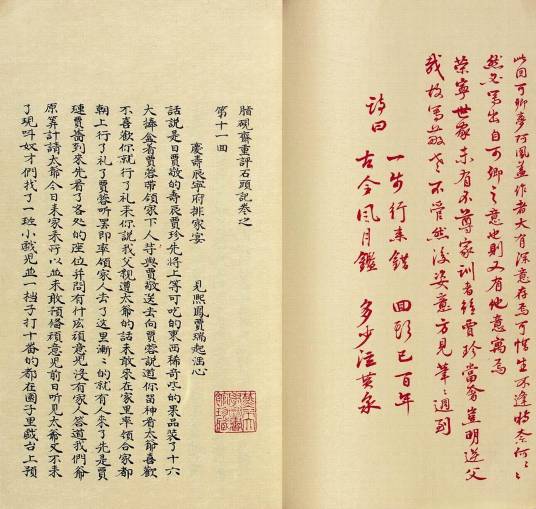 此回可卿夢阿鳳蓋作者大有深意存焉可惜生不逢時奈何〻〻
然必寫出自可卿之意也則又有他意寓焉
榮寧世家未有不尊家訓者雖賈珍當奢豈明逆父
哉故寫敬老不管然後姿意方見筆〻週到
詩曰
一步行來錯 回頭已百年
古今風月鑑 多少泣黃泉
脂硯齋重評石頭記卷之
第十一回
慶壽辰寧府排家宴 見熙鳳賈瑞起淫心
話說是日賈敬的壽辰賈珍先將上等可吃的東西稀奇些的果品裝了十六
大捧盒着賈蓉帶領家下人等與賈敬送去向賈蓉說道你留神看太爺喜歡
不喜歡你就行了礼來你說我父親遵太爺的話未敢來在家里率領合家都
朝上行了礼了賈蓉聽罷即率領家人去了這里漸〻的就有人來了先是賈
璉賈薔到來先看了各處的座位並問有什広頑意児沒有家人答道我們爺
原算計請太爺今日來家來所以並未敢預備頑意児前日聽見太爺又不來
了現叫奴才們找了一班小戲児並一檔子打十番的都在園子里戲台上預